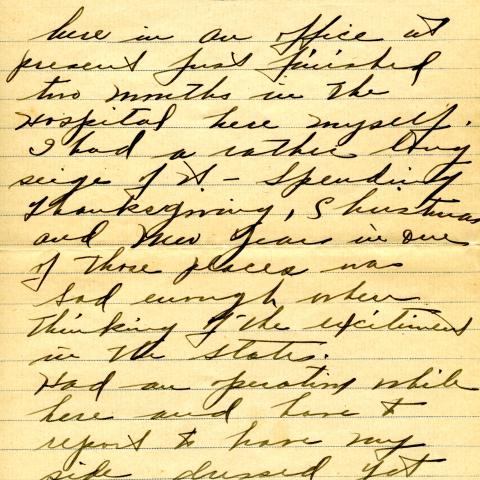 here in an office at
present just finished
two months in the
Hospital here myself.
I had a rather long
seige of it - Spending
Thanksgiving, Christmas
and New Years in one
of those places was
sad enough when
thinking of the excitiment
in the States.
Had an operation while
here and have to
report to have my
side dressed yet